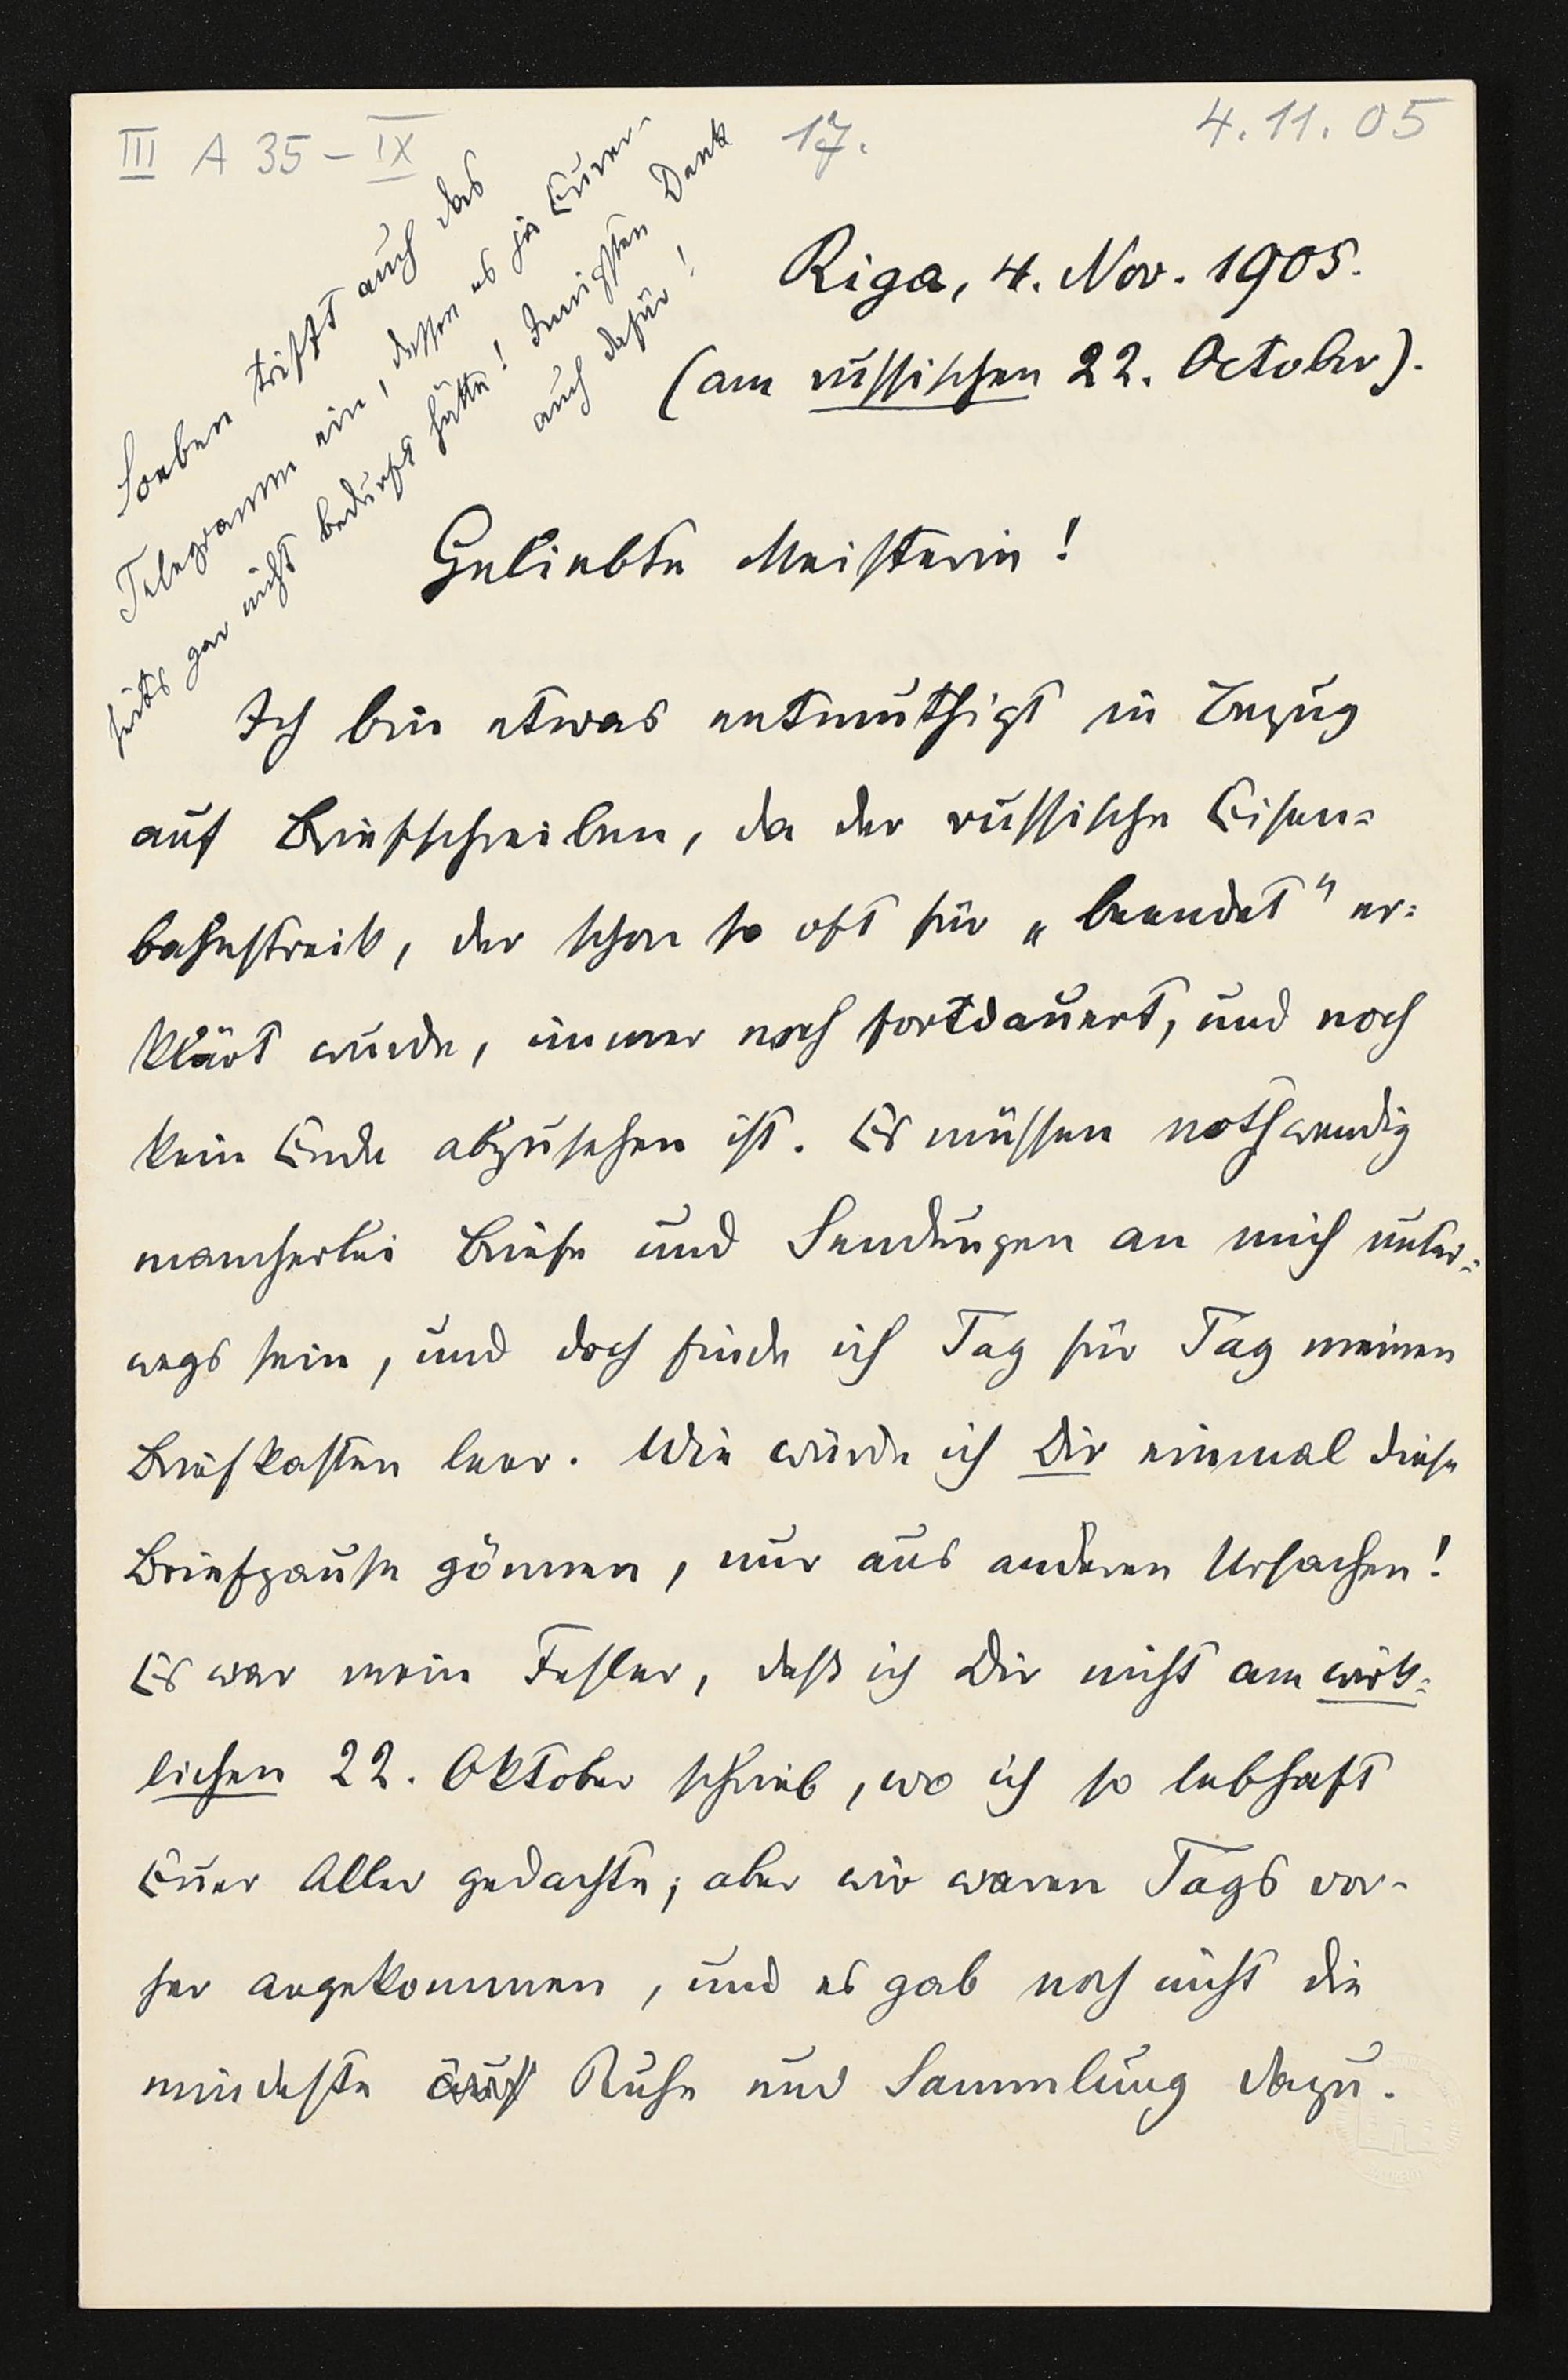 III A 35-IX
17.
4.11.05
Soeben trifft auch das
Telegramm ein, dessen es ja Eurer-
seits gar nicht bedurft hätte! Innigsten Dank
auch dafür!
Riga, 4. Nov. 1905.
(am russischen 22. October).
Geliebte Meisterin!
Ich bin etwas entmuthigt in Bezug
auf Briefschreiben, da der russische Eisen=
bahnstreik, der schon so oft für „beendet" er=
klärt wurde, immer noch fortdauert, und noch
kein Ende abzusehen ist. Es müssen nothwendig
mancherlei Briefe und Sendungen an mich unter=
wegs sein, und doch finde ich Tag für Tag meinen
Briefkasten leer. Wie würde ich Dir einmal diese
Briefpause gönnen, nur aus anderen Ursachen!
Es war mein Fehler, daß ich Dir nicht am wirk=
lichen 22. Oktober schrieb, wo ich so lebhaft
Euer Aller gedachte; aber wir waren Tags vor-
her angekommen, und es gab noch nicht die
mindeste Ruhe und Sammlung dazu.